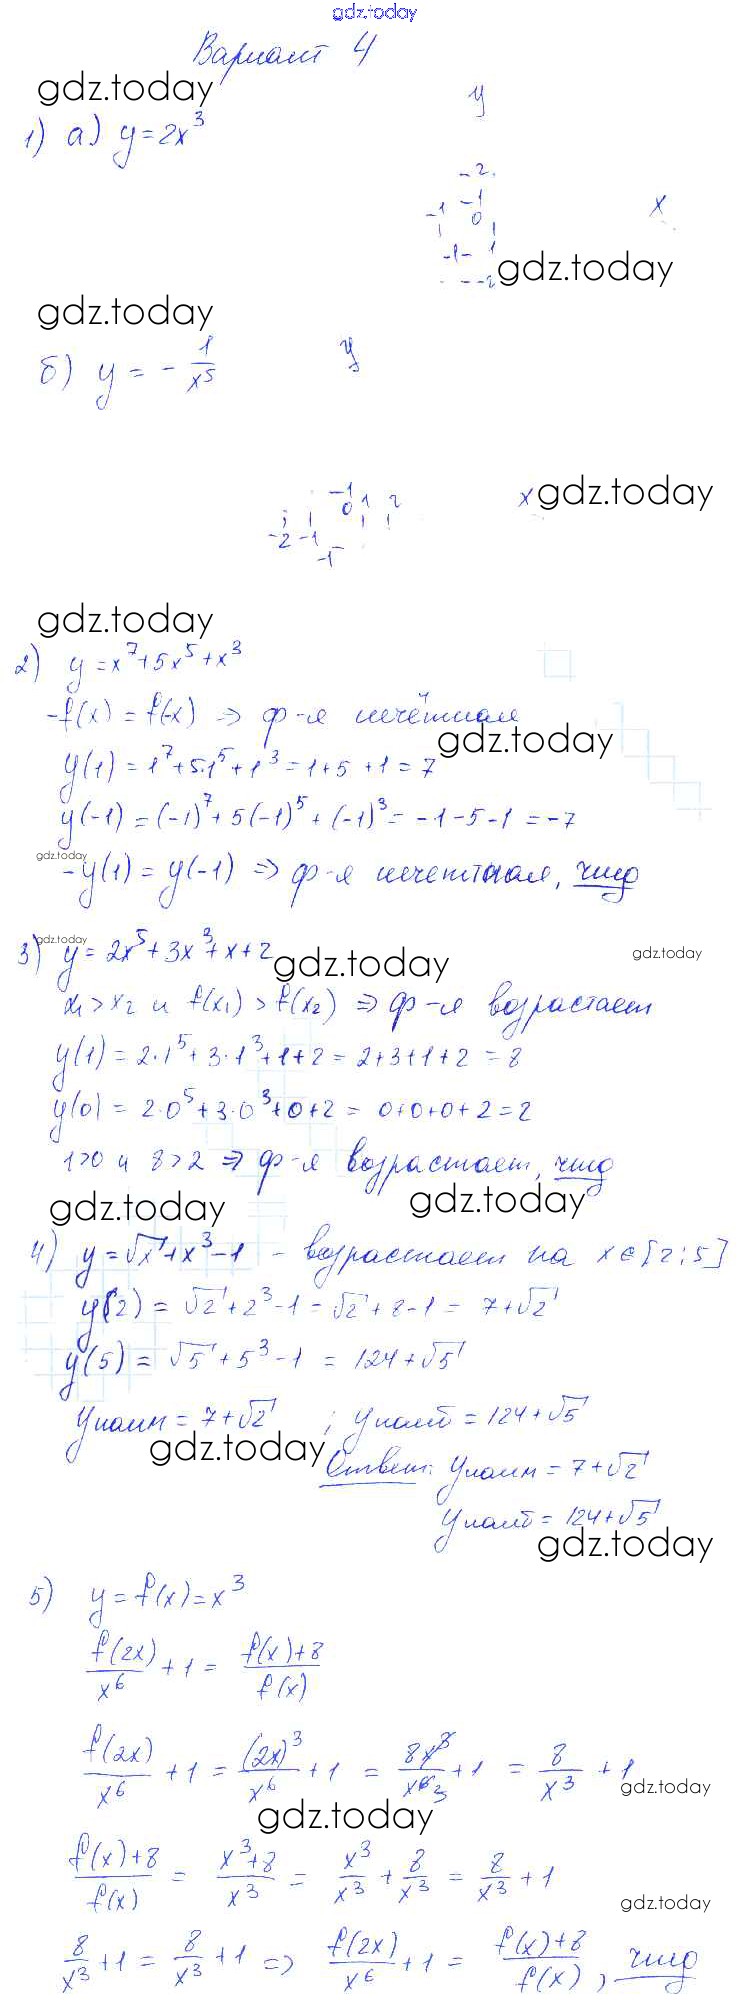 gdz.today
Вариант 4
gdz.today
1) а) y = 2x³
y
-2
-1 -1
0 x
1
-1- 1
--2 gdz.today
gdz.today
б) y = - 1/x⁵ y
-1 1 2 x gdz.today
0
-2 -1
-1
gdz.today
2) y = x⁷+5x⁵+x³
-f(x) = f(-x) => ф-я нечётная
gdz.today
y(1) = 1⁷+5·1⁵+1³ = 1+5+1 = 7
y(-1) = (-1)⁷+5(-1)⁵+(-1)³ = -1-5-1 = -7
gdz.today
-y(1) = y(-1) => ф-я нечетная, чтд
gdz.today
3) y = 2x⁵+3x³+x+2 gdz.today gdz.today
x₁>x₂ и f(x₁)>f(x₂) => ф-я возрастает
y(1) = 2·1⁵+3·1³+1+2 = 2+3+1+2 = 8
y(0) = 2·0⁵+3·0³+0+2 = 0+0+0+2 = 2
1>0 и 8>2 => ф-я возрастает, чтд
gdz.today gdz.today
4) y = √x+x³-1 - возрастает на x∈[2;5]
y(2) = √2+2³-1 = √2+8-1 = 7+√2
y(5) = √5+5³-1 = 124+√5
yнаим = 7+√2 ; yнаиб = 124+√5
gdz.today
Ответ: yнаим = 7+√2
yнаиб = 124+√5
gdz.today
5) y = f(x) = x³
f(2x)/x⁶ + 1 = (f(x)+8)/f(x)
f(2x)/x⁶ + 1 = (2x)³/x⁶ + 1 = 8x³/x⁶ ³ + 1 = 8/x³ + 1
gdz.today
gdz.today
(f(x)+8)/f(x) = (x³+8)/x³ = x³/x³ + 8/x³ = 8/x³ + 1
gdz.today
8/x³ + 1 = 8/x³ + 1 => f(2x)/x⁶ + 1 = (f(x)+8)/f(x), чтд